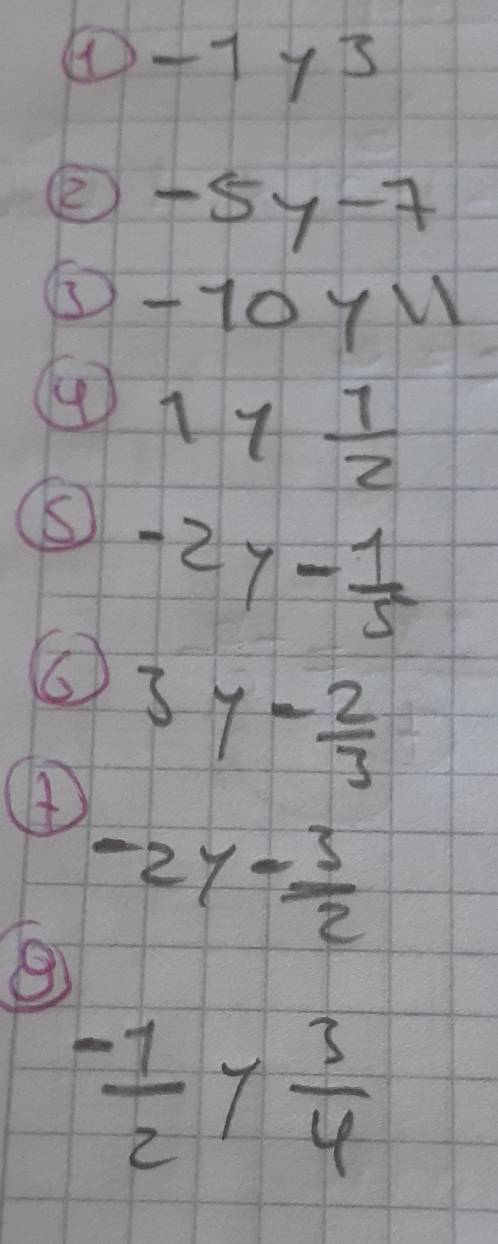 ① -1 y 3
② -5 y -7
③ -10 y 11
④ 1 y 1/2
⑤ -2 y -1/5
⑥ 3 y -2/3
⑦ -2 y -3/2
⑧ -1/2 y 3/4